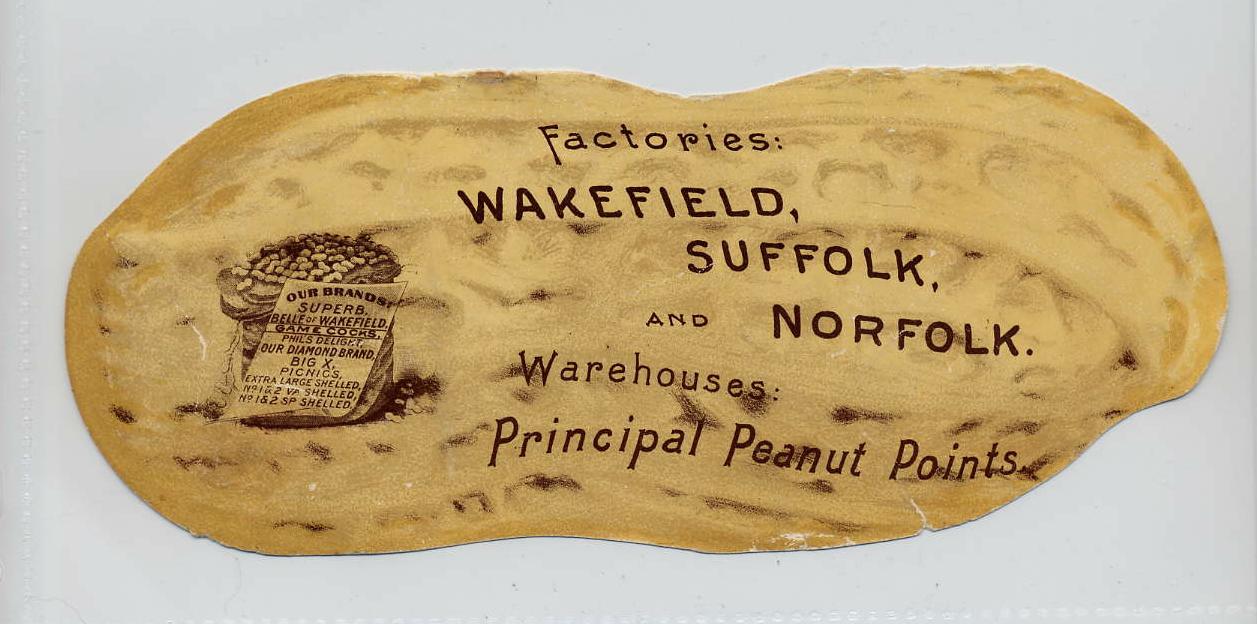 Factories:
WAKEFIELD,
SUFFOLK,
AND NORFOLK.
Warehouses:
Principal Peanut Points.
OUR BRANDS:
SUPERB,
BELLE OF WAKEFIELD,
GAME COCKS,
PHIL'S DELIGHT,
OUR DIAMOND BRAND,
BIG X,
PICNICS,
EXTRA LARGE SHELLED,
Nº 1 & 2 VA SHELLED,
Nº 1 & 2 SP SHELLED,